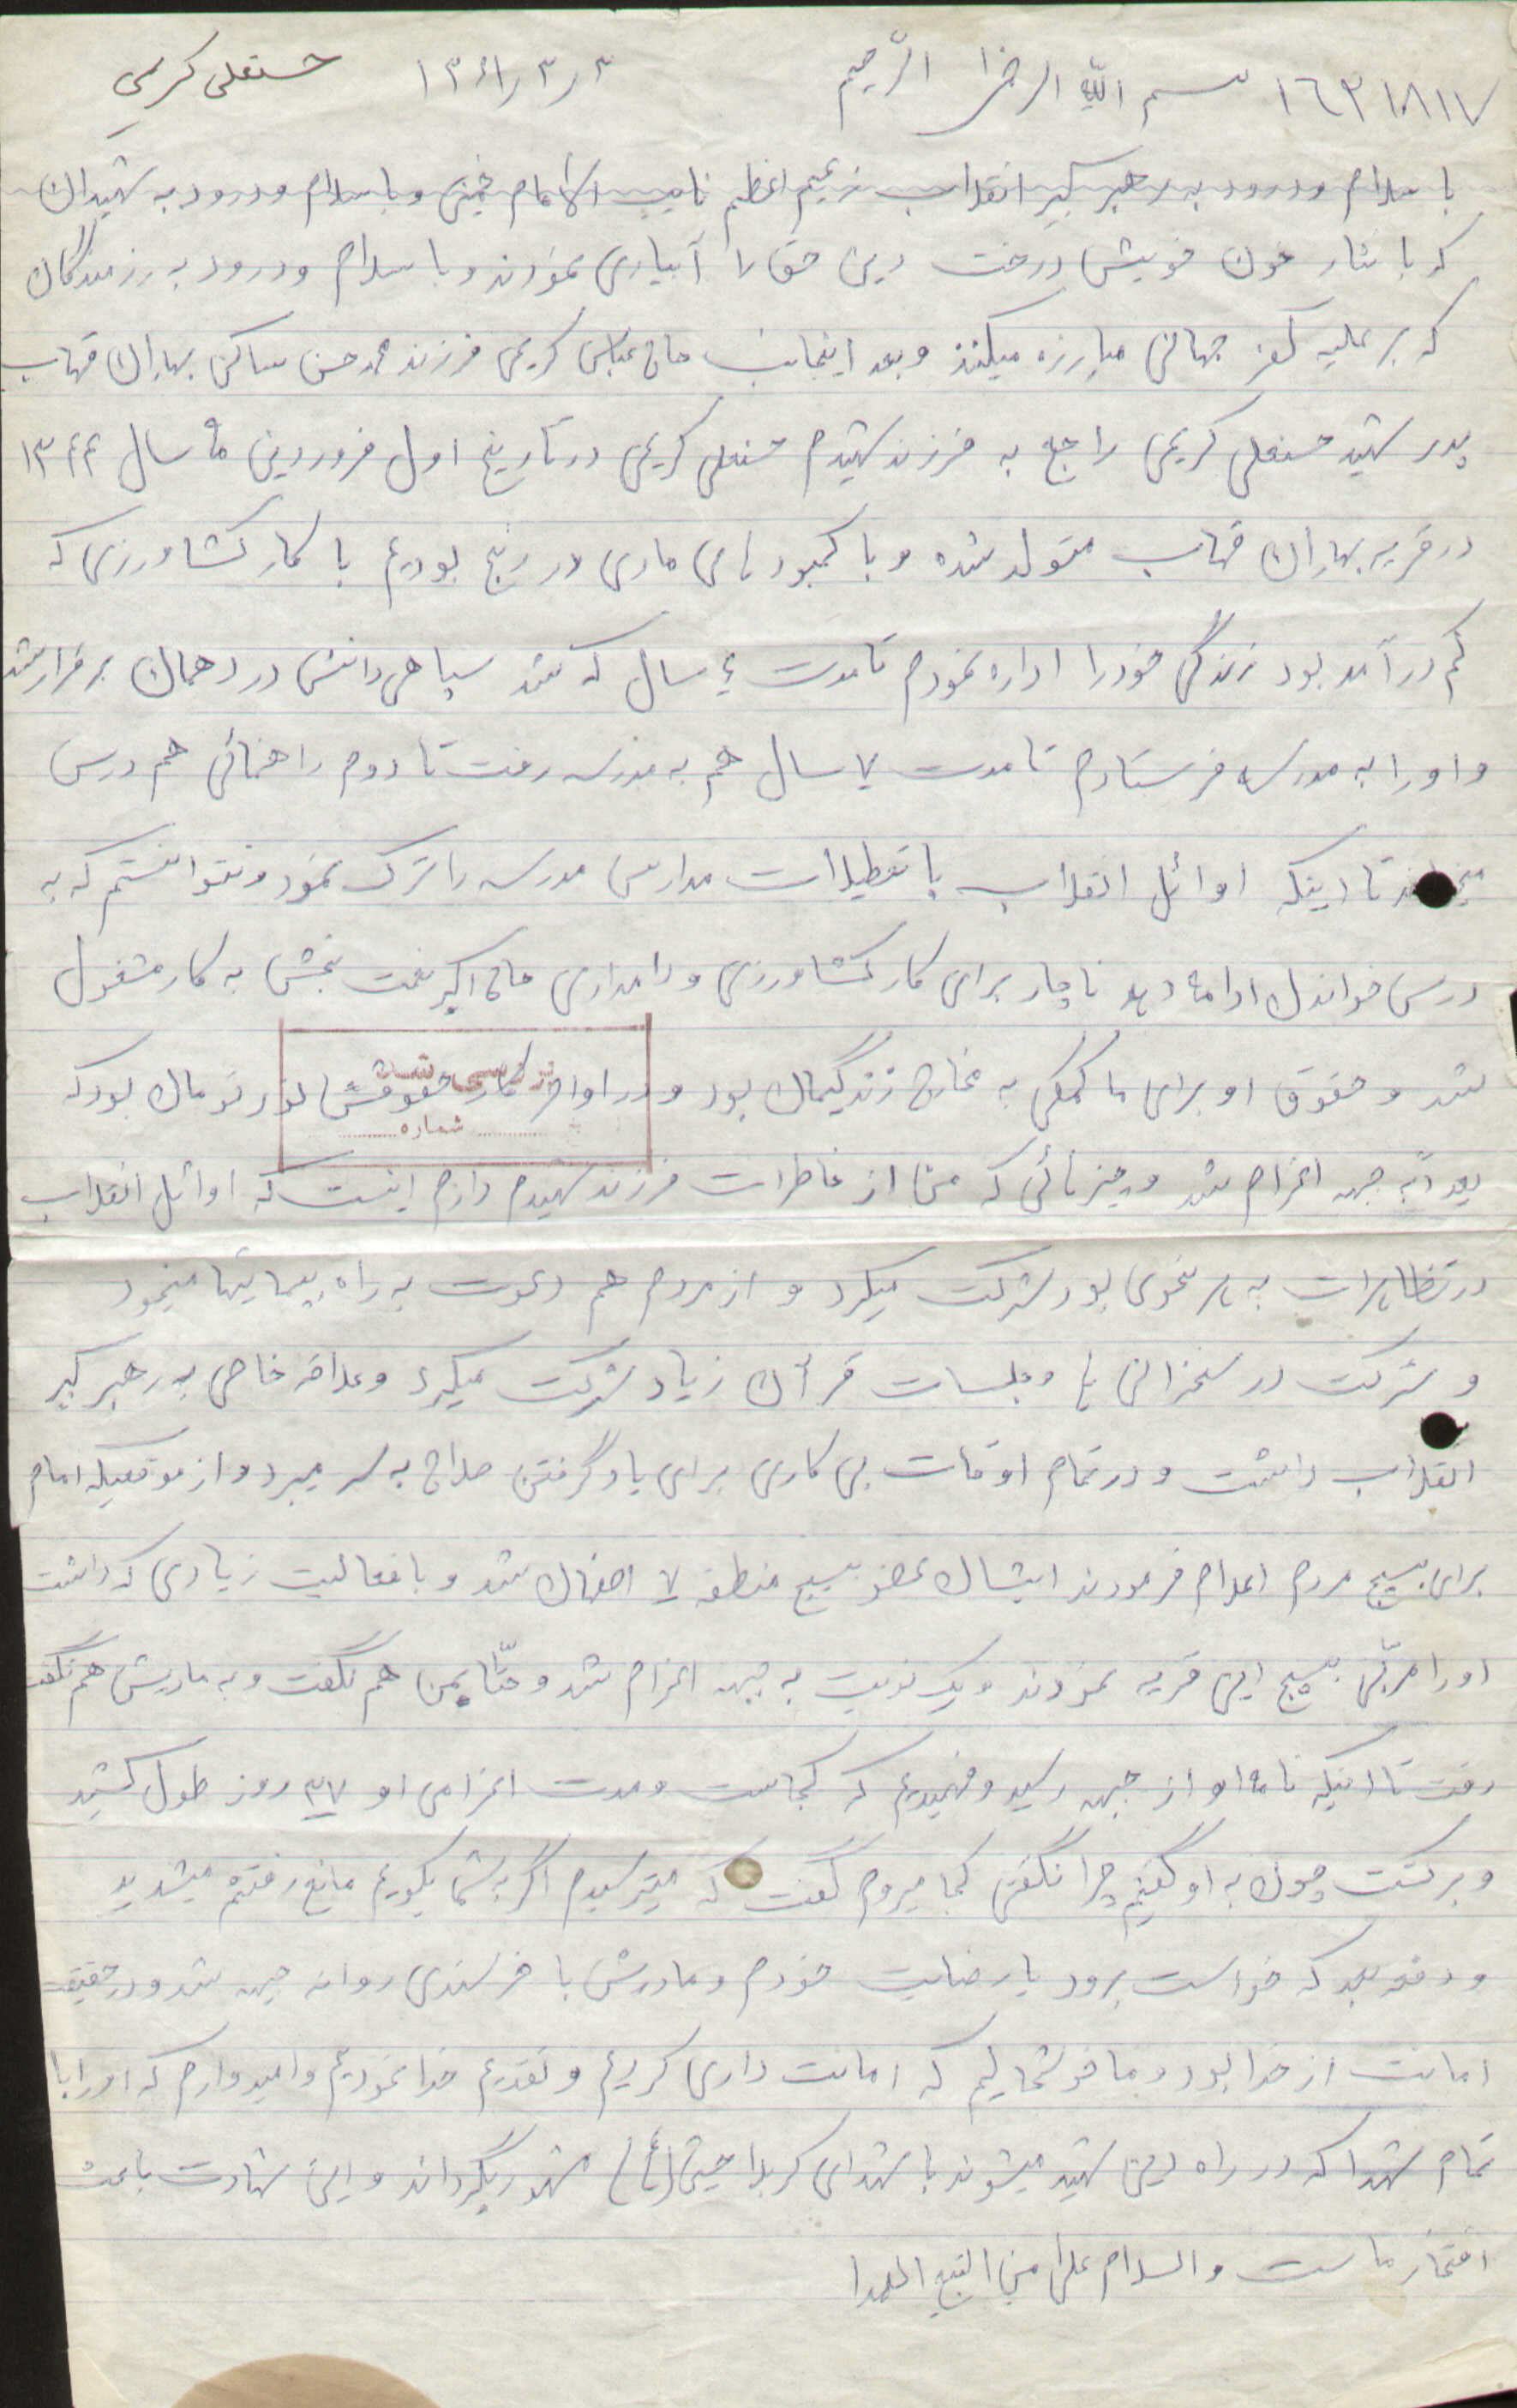 ۱۶۳۱۸۱۷ بسم الله الرحمن الرحیم ۱۳۶۱/۳/۳ حسنعلی کریمی
با سلام و درود به رهبر کبیر انقلاب زعیم اعظم نایب الامام خمینی و با سلام و درود به شهیدان
که با نثار خون خویش درخت دین حق را آبیاری نمودند و با سلام و درود به رزمندگان
که بر علیه کفر جهانی مبارزه میکنند و بعد اینجانب حاج عباس کریمی فرزند محمد حسن ساکن بهاران قهاب
پدر شهید حسنعلی کریمی راجع به فرزند شهیدم حسنعلی کریمی در تاریخ اول فروردین ماه سال ۱۳۴۴
در قریه بهاران قهاب متولد شده و با کمبودهای مادی در رنج بودیم با کار کشاورزی که
کم درآمد بود زندگی خود را اداره نمودم تا مدت ۶ سال که شد سپاهی دانش در دهمان برقرار شد
و او را به مدرسه فرستادم تا مدت ۷ سال هم به مدرسه رفت تا دوم راهنمائی هم درس
میخواند تا اینکه اوائل انقلاب با تعطیلات مدارس مدرسه را ترک نمود و نتوانستم که به
درس خواندن ادامه دهد ناچار برای کار کشاورزی و دامداری حاج اکبر نعمت بخش به کار مشغول
شد و حقوق او برای ما کمکی به مخارج زندگیمان بود و در اواخر کار حقوقش تومان بود که
بررسی شد
شماره
بعداً به جبهه اعزام شد و چیزهائی که من از خاطرات فرزند شهیدم دارم اینست که اوائل انقلاب
در تظاهرات به هر نحوی بود شرکت میکرد و از مردم هم دعوت به راه پیمائیها مینمود
و شرکت در سخنرانی ها و جلسات قرآن زیاد شرکت میکرد و علاقه خاصی به رهبر کبیر
انقلاب داشت و در تمام اوقات بی کاری برای یاد گرفتن سلاح به سر میبرد و از موقعیکه امام
برای بسیج مردم اعلام فرمودند ایشان عضو بسیج منطقه ۷ اصفهان شد و با فعالیت زیادی که داشت
او را مربّی بسیج این قریه نمودند و یک نوبت به جبهه اعزام شد و حتّا بمن هم نگفت و به مادرش هم نگفت
رفت تا اینکه نامه او از جبهه رسید و فهمیدیم که کجاست و مدت اعزامی او ۳۷ روز طول کشید
و برگشت چون به او گفتیم چرا نگفتی کجا میروم گفت که میترسیدم اگر به شما بگویم مانع رفتنم میشدید
و دفعه بعد که خواست برود با رضایت خودم و مادرش با خرسندی روانه جبهه شد و در حقیقت
امانت از خدا بود و ما خوشحالیم که امانت داری کردیم و تقدیم خدا نمودیم و امیدوارم که او را با
تمام شهدا که در راه دین شهید میشوند با شهدای کربلا حسین (ع) مشهور بگرداند و این شهادت باعث
افتخار ماست والسلام علی من التبع الهدا